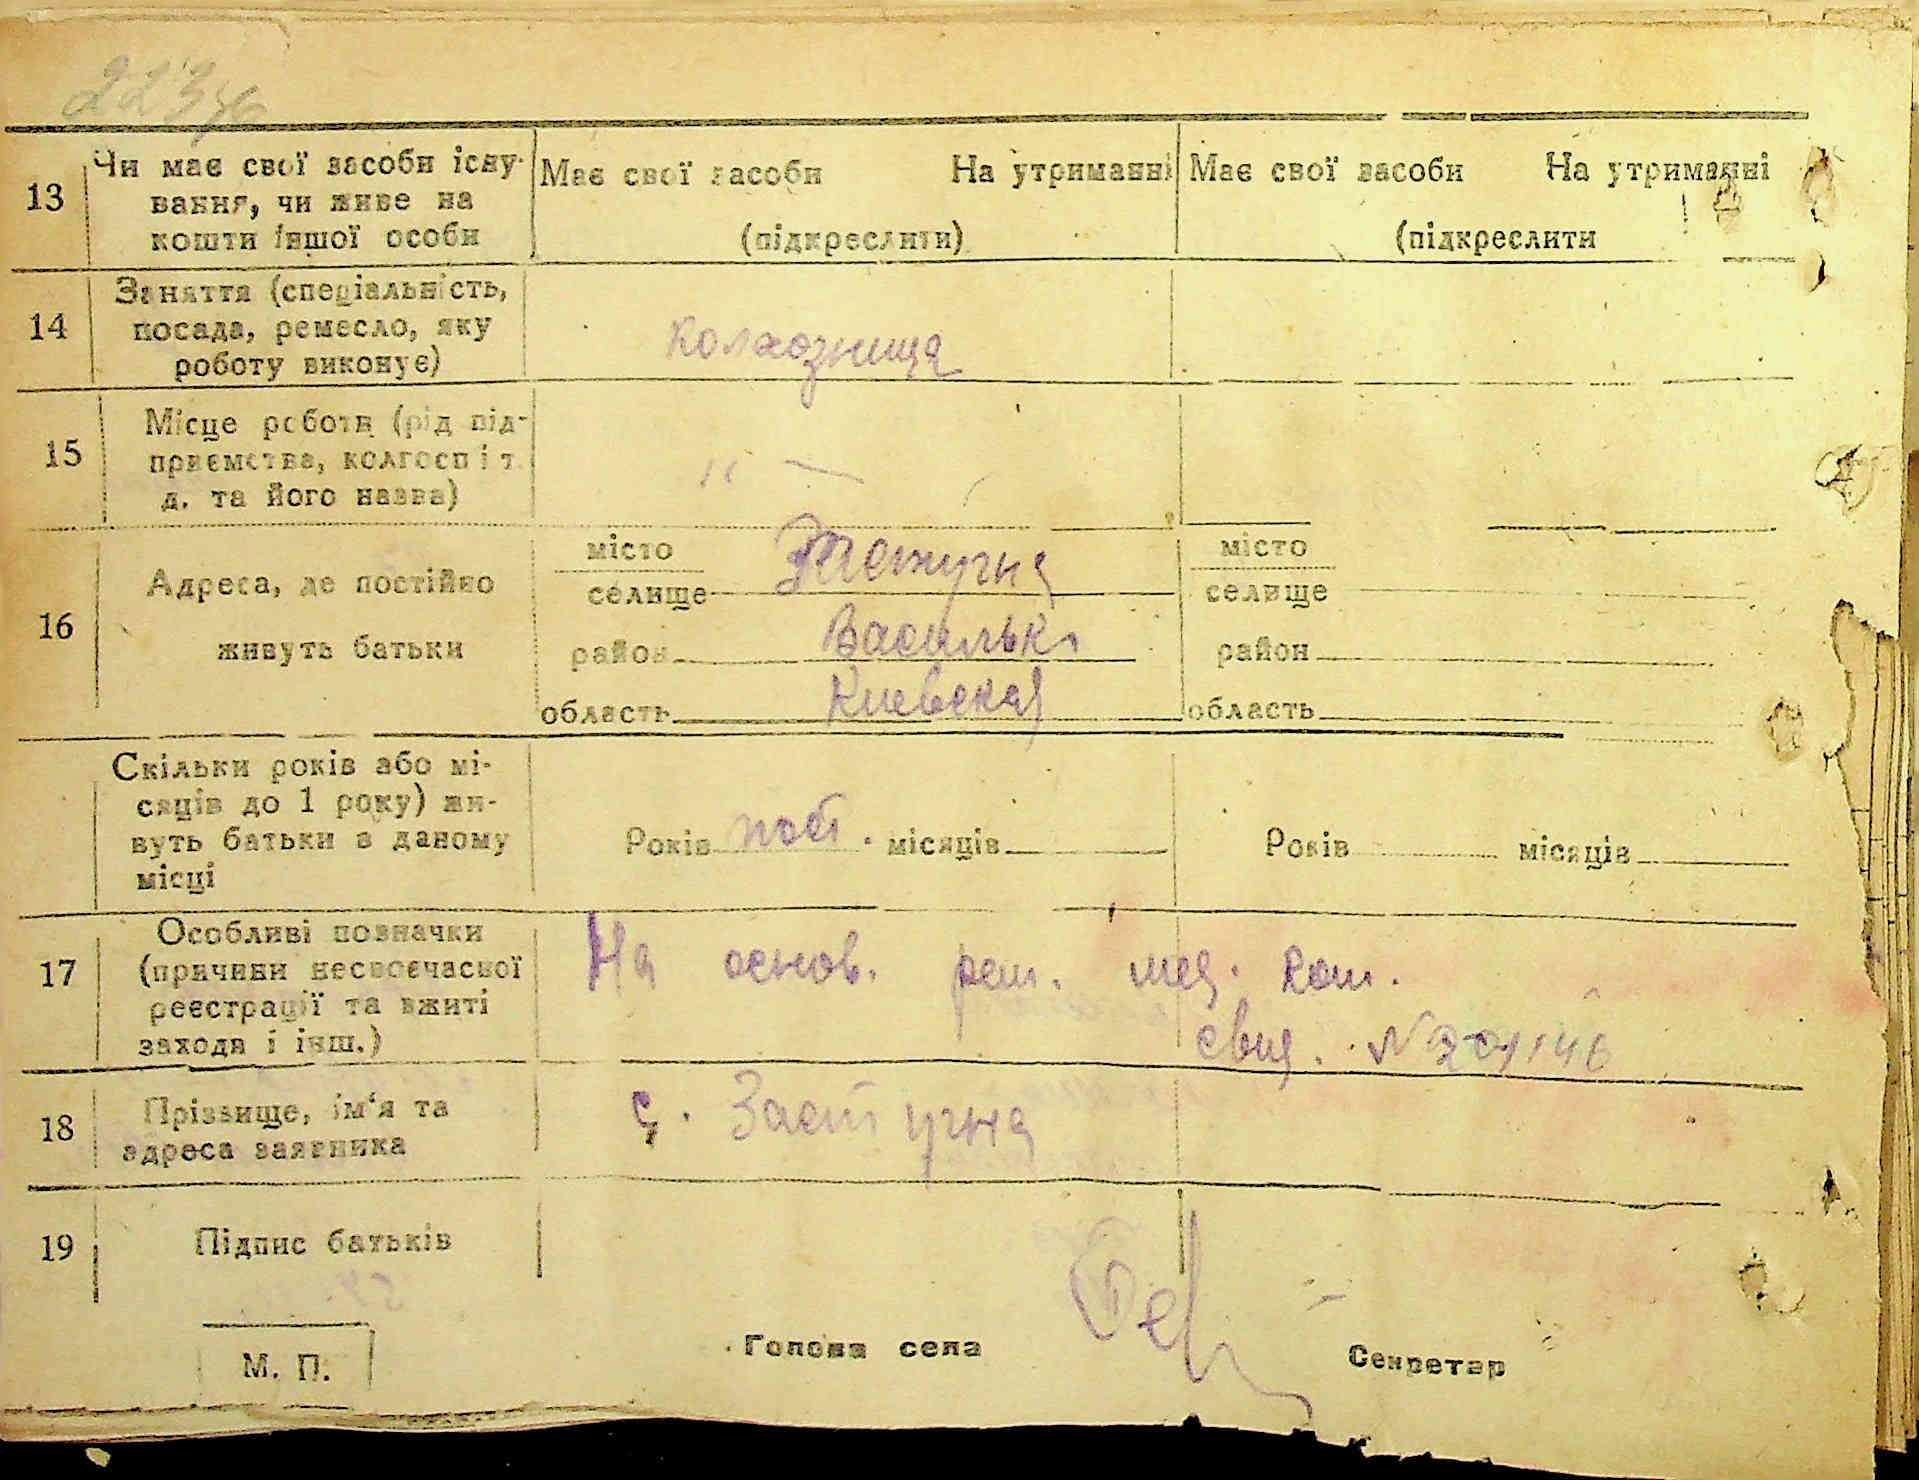 223
13 Чи має свої засоби існу- Має свої засоби На утриманні Має свої засоби На утриманні
вання, чи живе на
кошти іншої особи (підкреслити) (підкреслити
14 Заняття (спеціальність,
посада, ремесло, яку колхозница
роботу виконує)
15 Місце роботи (рід під-
приємства, колгосп і т. " —
д. та його назва)
місто місто
16 Адреса, де постійно селище Застугна селище
живуть батьки район Васильк район
область Киевская область
Скільки років або мі-
сяців до 1 року) жи-
вуть батьки в даному Років пост. місяців Років місяців
місці
17 Особливі позначки
(причини несвоєчасної На основ. реш. мед. ком.
реєстрації та вжиті
заходи і інш.) свид. N
18 Прізвище, ім'я та с. Застугна
адреса заявника
19 Підпис батьків
М. П. Голова села Секретар